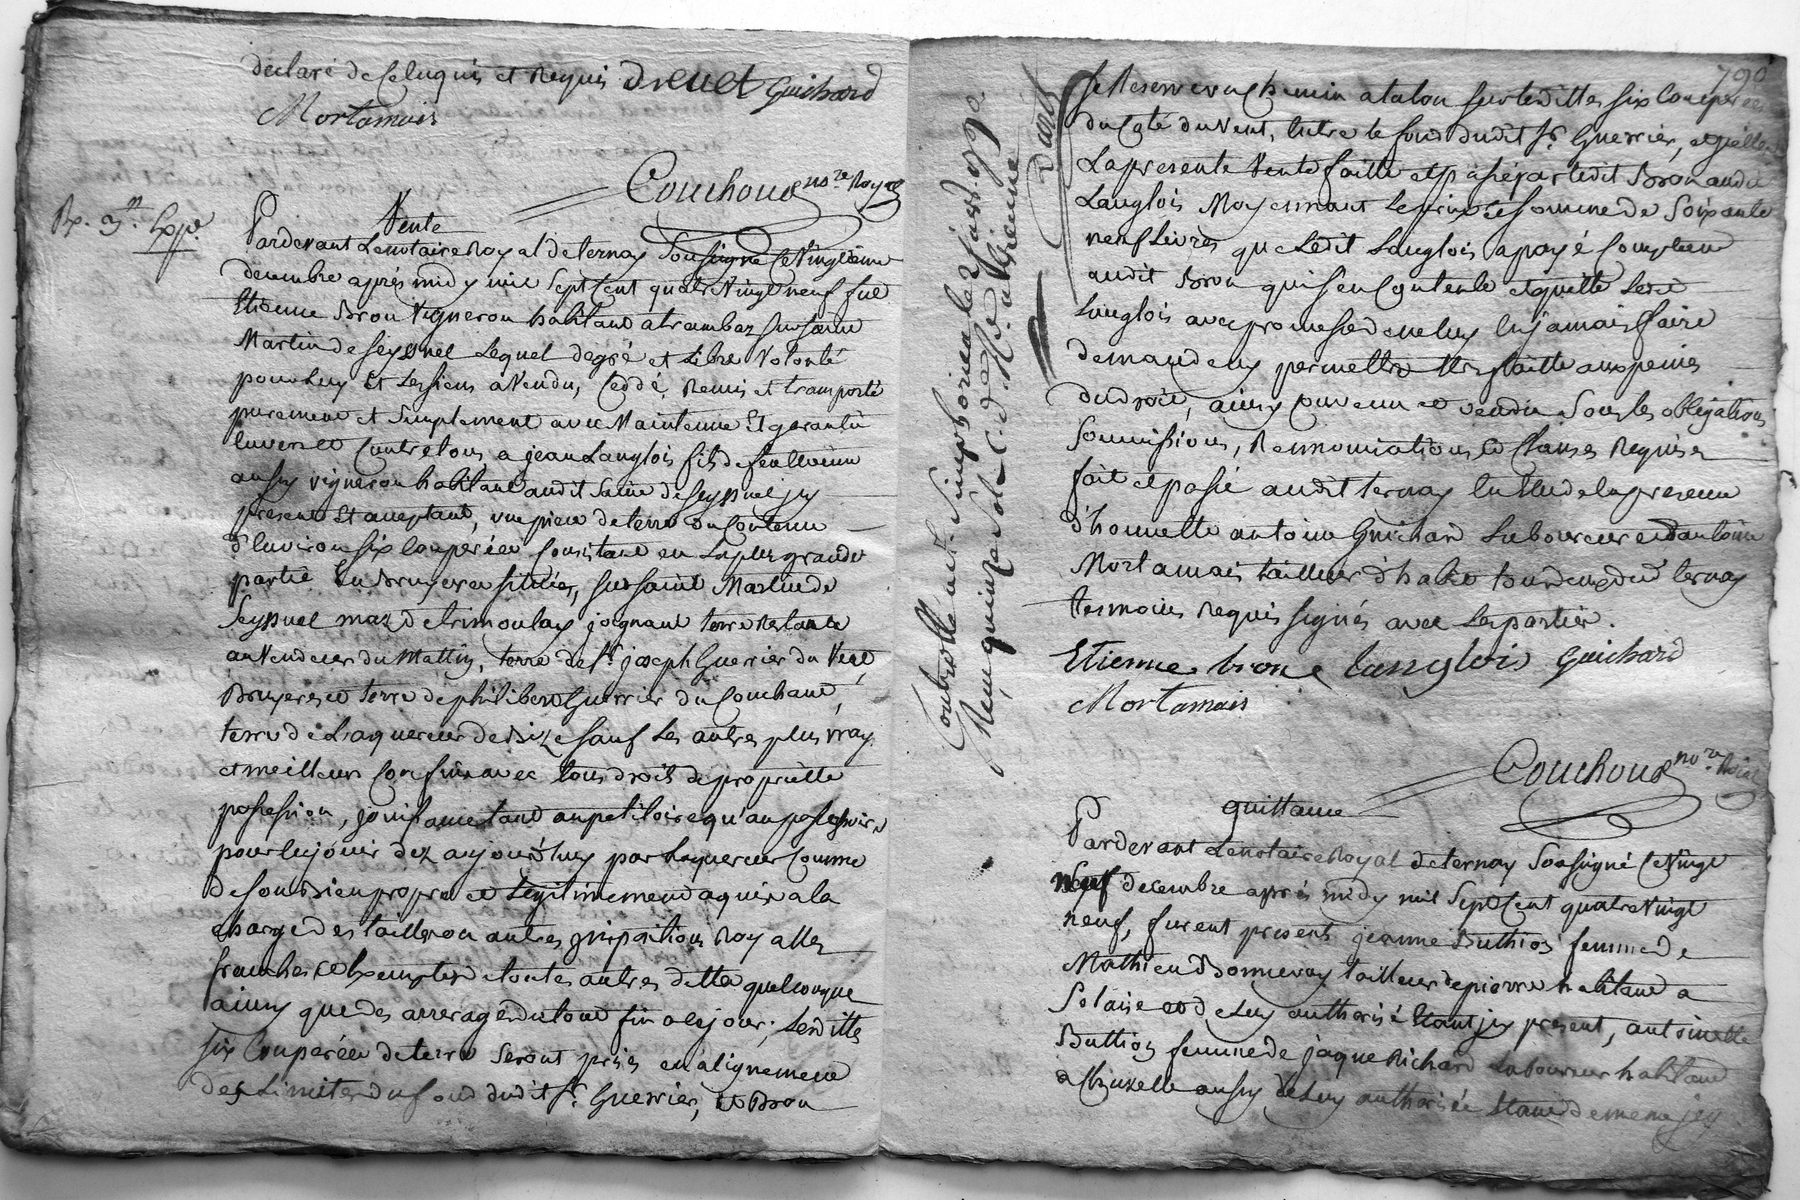 declaré de Ce enquis et Requis Dreuet Guichard
Mortamais
Couchoud no.re Royal
Rx. 3.tt Exp.é
Vente
Pardevant Lenotaire Royal de ternay Soussigné Ce Vingtieme
decembre après midy mil Sept Cent quatre Vingt neuf fut
Etienne Bron Vigneron habitant a trambaz sur Saint
Martin de seyssuel Lequel de gré et Libre Volonté
pour Luy Et Les siens a Vendu, Ceddé, Remis et transporté
purement et simplement avec Maintenue Et garantie
Envers et Contre tous a jean Langlois fils de feu
aussy vigneron habitant audit Saint de seyssuel jcy
present Et acceptant, une piece de terre du Contenu
d'Environ six Couperées Consistant en La plus grande
partie En Bruyeres situées, sur saint Martin de
Seyssuel maz de trimoulay joignant terre Restante
au Vendeur du Mattin, terre de s.r joseph Guerrier du Vent
Bruyeres et terre de philibert Guerrier du Couchant,
terre de L'aquereur de Bize sauf Les autres plus vray
et meilleurs Confins avec tous droits de proprietté
possession, jouissance tant au petitoire qu'au possessoire
pour En jouir dez aujourd'huy par Laquereur Comme
de son Bien propre et Legitimement aquis a la
charge des tailles ou autres jmpositions Royalles
franches et Exemptes de toutes autres dettes quelconque
ainsy que des arrerages du tout fin a ce jour; Lesdittes
six Couperées de terre seront prises en alignement
des Limites du fond dudit s.r Guerrier, et Bron
790
se Reserve un chemin a talon sur Lesdittes six Couperées
du Coté du Vent, Entre le fond dudit s.r Guerrier, et
La presente Vente faitte et passée par Ledit Bron audit
Langlois Moyennant Le prix et somme de soixante
neuf Livres que Ledit Langlois a payé Comptant
audit Bron qui s'en Contente et quitte Ledit
Langlois avec promesse de ne luy En jamais faire
demande ny permettre Etre faitte aux peines
du droit, ainsy Convenu et vendu sous les obligations
soumissions, Renonciations et Clauses Requises
fait et passé audit ternay En Etude En presence
d'honnette antoine Guichard Laboureur et d'antoine
Mortamais tailleur d'habit tous deux dud. ternay
temoins Requis signés avec Les parties.
Etienne bron e langlois Guichard
Mortamais
Couchoud no.re Roial
Controllé a S.t Simphorien le 2 janv. 1790
Reçu quinze sols
quittance
Pardevant Lenotaire Royal de ternay Soussigné Ce Vingt
Neuf decembre après midy mil Sept Cent quatre Vingt
neuf, furent presents jeanne Buthion femme de
Mathieu Bonnevay tailleur de pierre habitant a
Solaise et de Luy authorisé Etant jcy present, antoinette
Buttion femme de jaque Richard Laboureur habitant
a Chuzelle aussy de Luy authorisée Etant de meme jcy